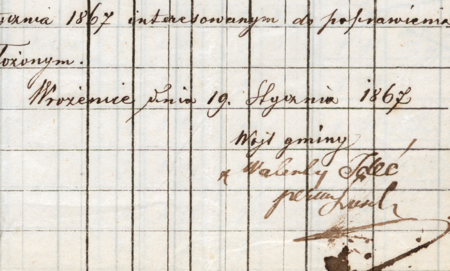 ycznia 1867 interesowanym do poprawienia
łożonym.
Wrożenice dnia 19. Stycznia 1867
Wójt gminy
Walenty